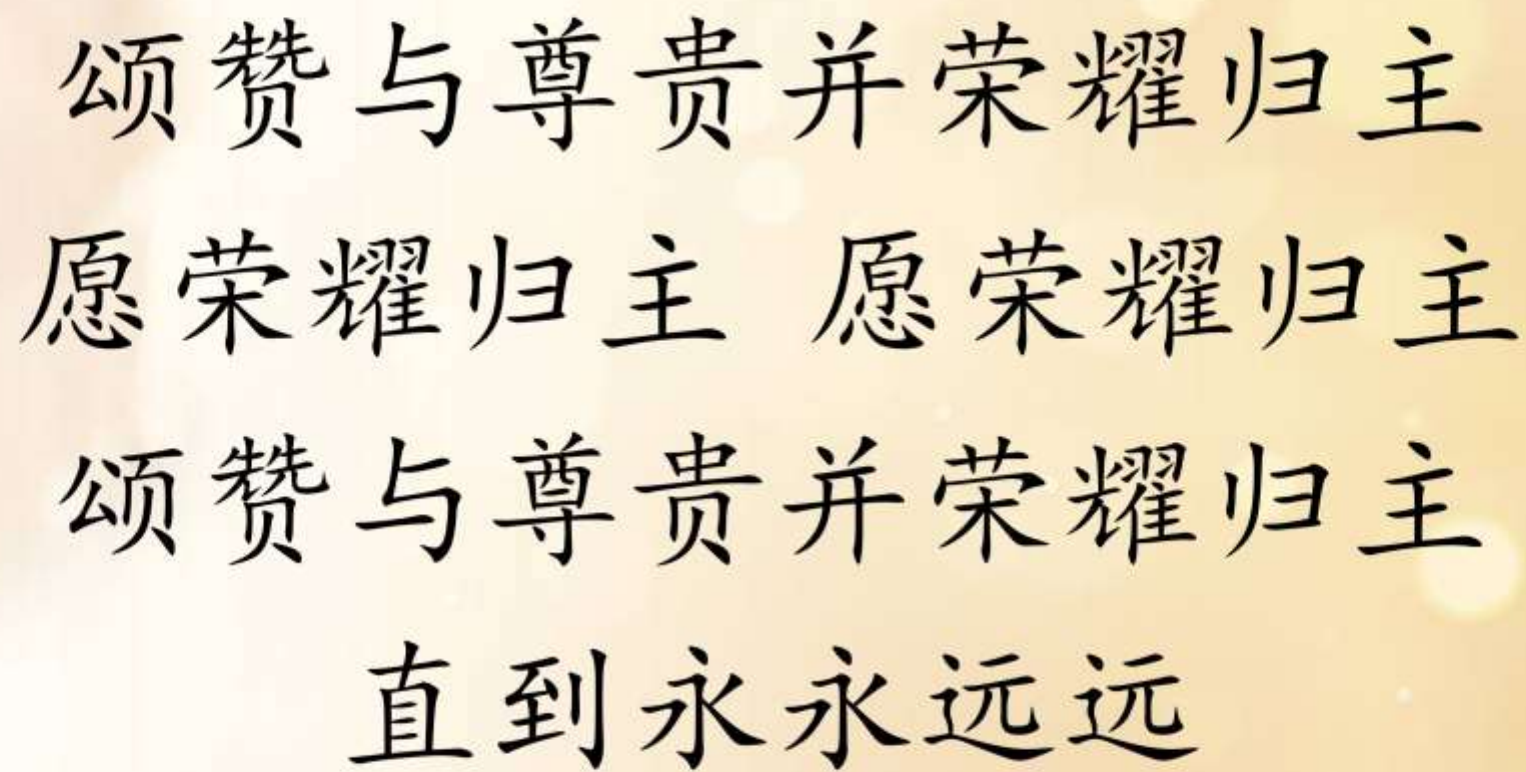 颂赞与尊贵并荣耀归主
愿荣耀归主 愿荣耀归主
颂赞与尊贵并荣耀归主
直到永永远远